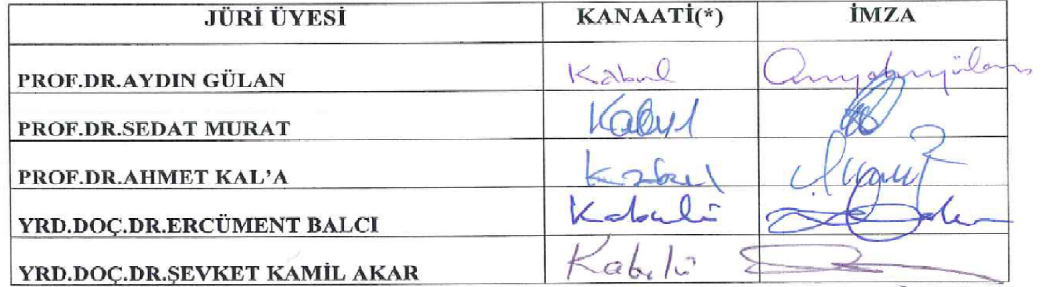 JÜRİ ÜYESİ KANAATİ(*) İMZA
PROF.DR.AYDIN GÜLAN Kabul
PROF.DR.SEDAT MURAT Kabul
PROF.DR.AHMET KAL'A Kabul
YRD.DOÇ.DR.ERCÜMENT BALCI Kabulü
YRD.DOÇ.DR.ŞEVKET KAMİL AKAR Kabulü